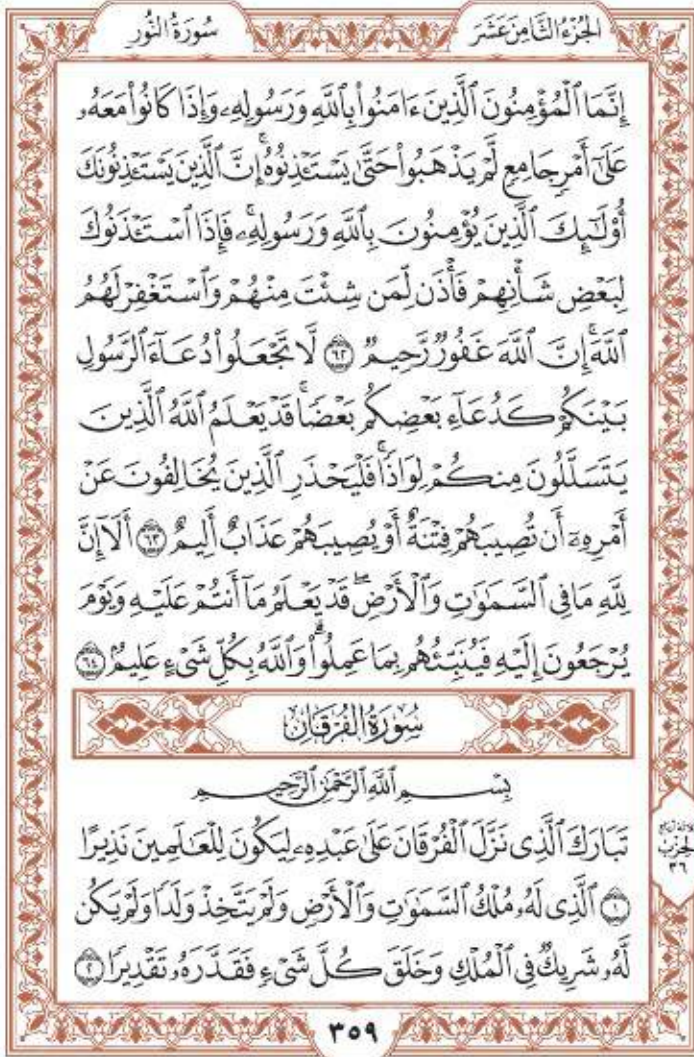 الجُزْءُ الثَّامِنَ عَشَرَ
سُورَةُ النُّور
إِنَّمَا ٱلْمُؤْمِنُونَ ٱلَّذِينَ ءَامَنُوا۟ بِٱللَّهِ وَرَسُولِهِۦ وَإِذَا كَانُوا۟ مَعَهُۥ
عَلَىٰٓ أَمْرٍ جَامِعٍ لَّمْ يَذْهَبُوا۟ حَتَّىٰ يَسْتَـْٔذِنُوهُ ۚ إِنَّ ٱلَّذِينَ يَسْتَـْٔذِنُونَكَ
أُو۟لَـٰٓئِكَ ٱلَّذِينَ يُؤْمِنُونَ بِٱللَّهِ وَرَسُولِهِۦ ۚ فَإِذَا ٱسْتَـْٔذَنُوكَ
لِبَعْضِ شَأْنِهِمْ فَأْذَن لِّمَن شِئْتَ مِنْهُمْ وَٱسْتَغْفِرْ لَهُمُ
ٱللَّهَ ۚ إِنَّ ٱللَّهَ غَفُورٌ رَّحِيمٌ ٦٢ لَّا تَجْعَلُوا۟ دُعَآءَ ٱلرَّسُولِ
بَيْنَكُمْ كَدُعَآءِ بَعْضِكُم بَعْضًا ۚ قَدْ يَعْلَمُ ٱللَّهُ ٱلَّذِينَ
يَتَسَلَّلُونَ مِنكُمْ لِوَاذًا ۚ فَلْيَحْذَرِ ٱلَّذِينَ يُخَالِفُونَ عَنْ
أَمْرِهِۦٓ أَن تُصِيبَهُمْ فِتْنَةٌ أَوْ يُصِيبَهُمْ عَذَابٌ أَلِيمٌ ٦٣ أَلَآ إِنَّ
لِلَّهِ مَا فِى ٱلسَّمَـٰوَٰتِ وَٱلْأَرْضِ ۖ قَدْ يَعْلَمُ مَآ أَنتُمْ عَلَيْهِ وَيَوْمَ
يُرْجَعُونَ إِلَيْهِ فَيُنَبِّئُهُم بِمَا عَمِلُوا۟ ۗ وَٱللَّهُ بِكُلِّ شَىْءٍ عَلِيمٌۢ ٦٤
سُورَةُ الفُرْقَانِ
بِسْمِ ٱللَّهِ ٱلرَّحْمَـٰنِ ٱلرَّحِيمِ
تَبَارَكَ ٱلَّذِى نَزَّلَ ٱلْفُرْقَانَ عَلَىٰ عَبْدِهِۦ لِيَكُونَ لِلْعَـٰلَمِينَ نَذِيرًا
١ ٱلَّذِى لَهُۥ مُلْكُ ٱلسَّمَـٰوَٰتِ وَٱلْأَرْضِ وَلَمْ يَتَّخِذْ وَلَدًا وَلَمْ يَكُن
لَّهُۥ شَرِيكٌ فِى ٱلْمُلْكِ وَخَلَقَ كُلَّ شَىْءٍ فَقَدَّرَهُۥ تَقْدِيرًا ٢
الحِزْب
٣٦
٣٥٩